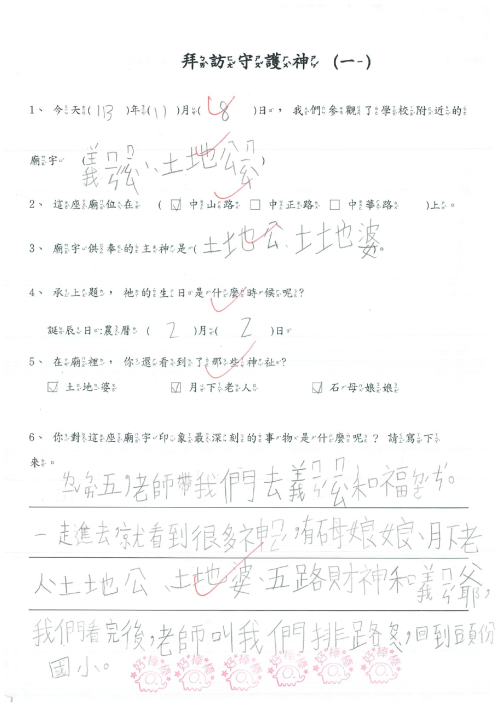 拜訪守護神 (一)
1、今天(113)年(11)月(8)日，我們參觀了學校附近的
廟宇 (義ㄇㄧㄣˊ公、土地公ㄍㄨㄥ)
2、這座廟位在 (☑中山路 □中正路 □中華路)上。
3、廟宇供奉的主神是(土地公、土地婆。
4、承上題，祂的生日是什麼時候呢?
誕辰日:農曆 (2)月(2)日
5、在廟裡，你還看到了那些神社?
☑土地婆 ☑月下老人 ☑石母娘娘
6、你對這座廟宇印象最深刻的事物是什麼呢？請寫下
來。
五,老師帶我們去義 和福 。
一走進去,就看到很多神 ,有石母娘娘、月下老
人、土地公、土地婆、五路財神和義 爺,
我們看完後,老師叫我們排路 ,回到頭份
國小。
好棒棒 好棒棒 好棒棒 好棒棒 好棒棒 好棒棒